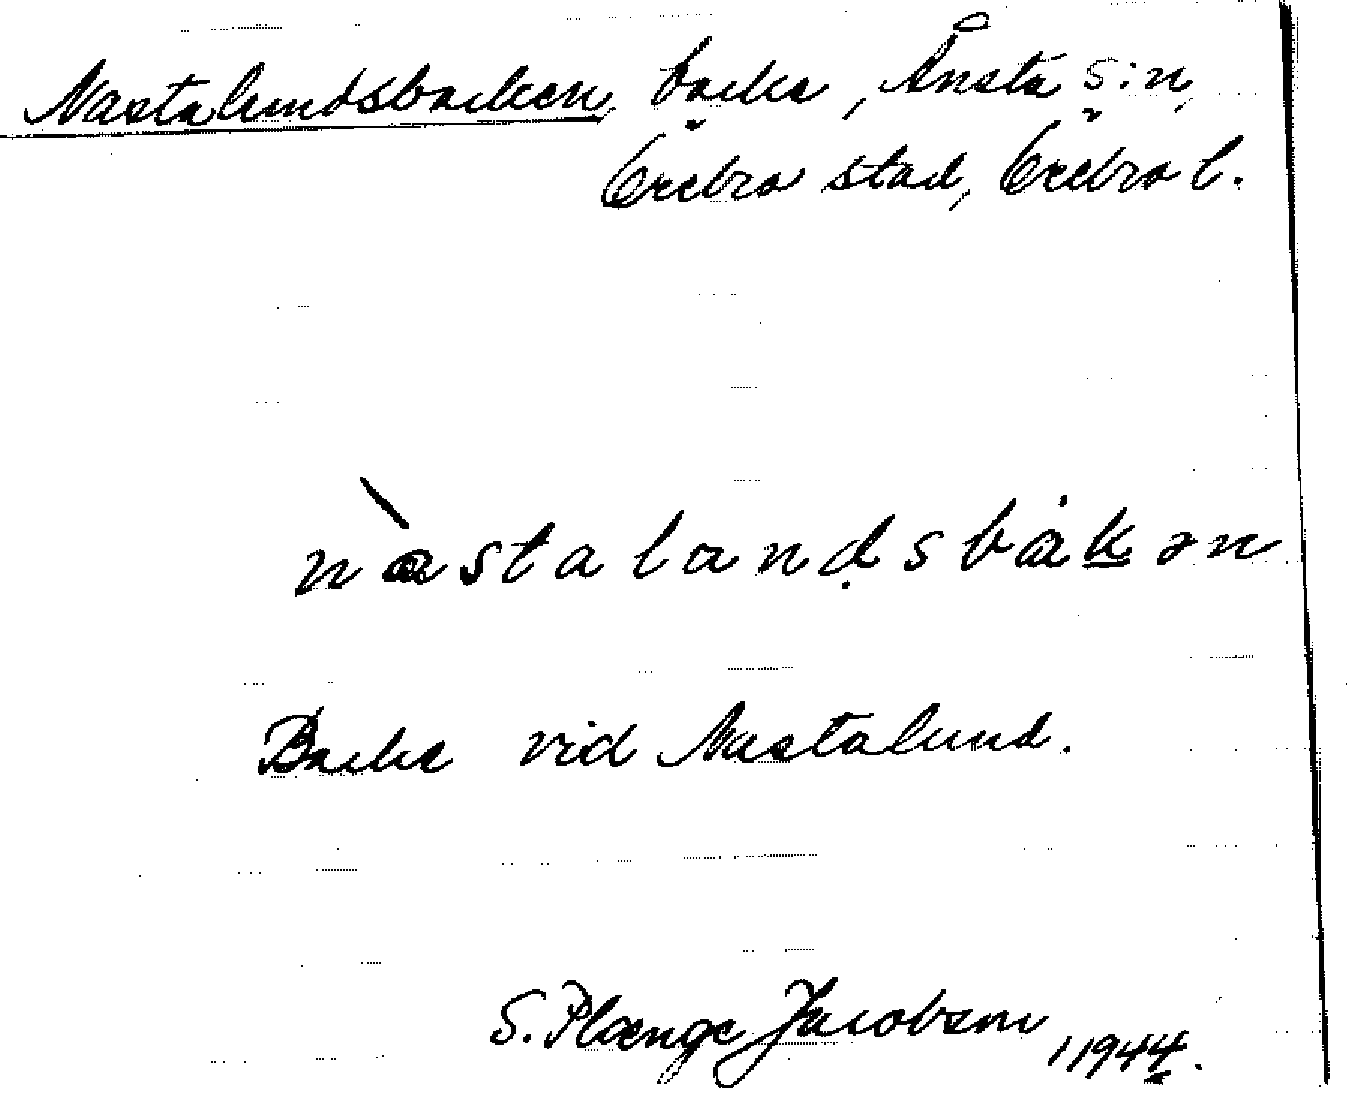 Nastalundsbacken, backe, Ånsta s:n,
Örebro stad, Örebro l.
nàstalandsbåkən
Backe vid Nastalund.
S. Plænge Jacobson 1944.